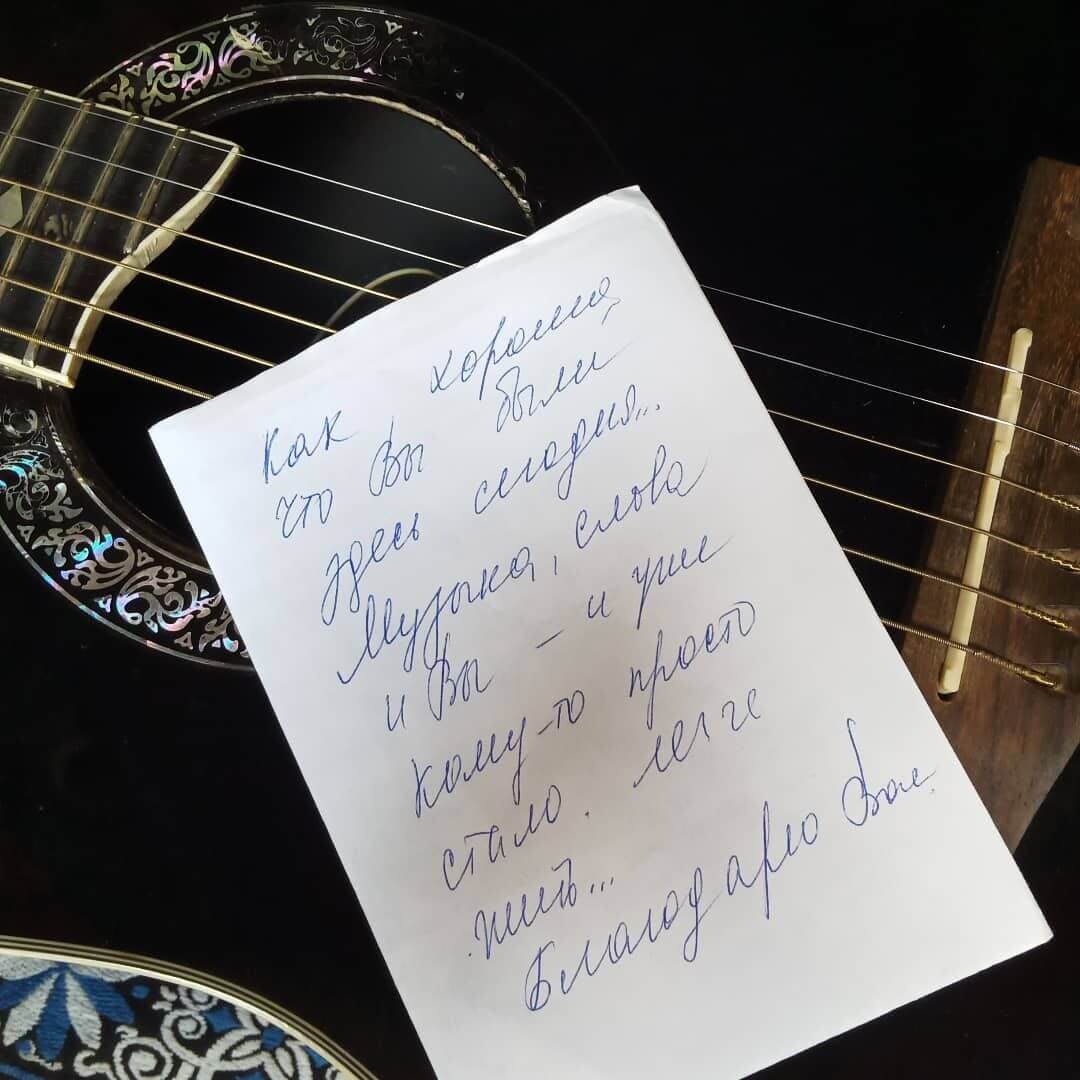 Как хорошо,
что Вы были
здесь сегодня...
Музыка, слова
и Вы – и уже
кому-то просто
стало легче
жить...
Благодарю Вас.